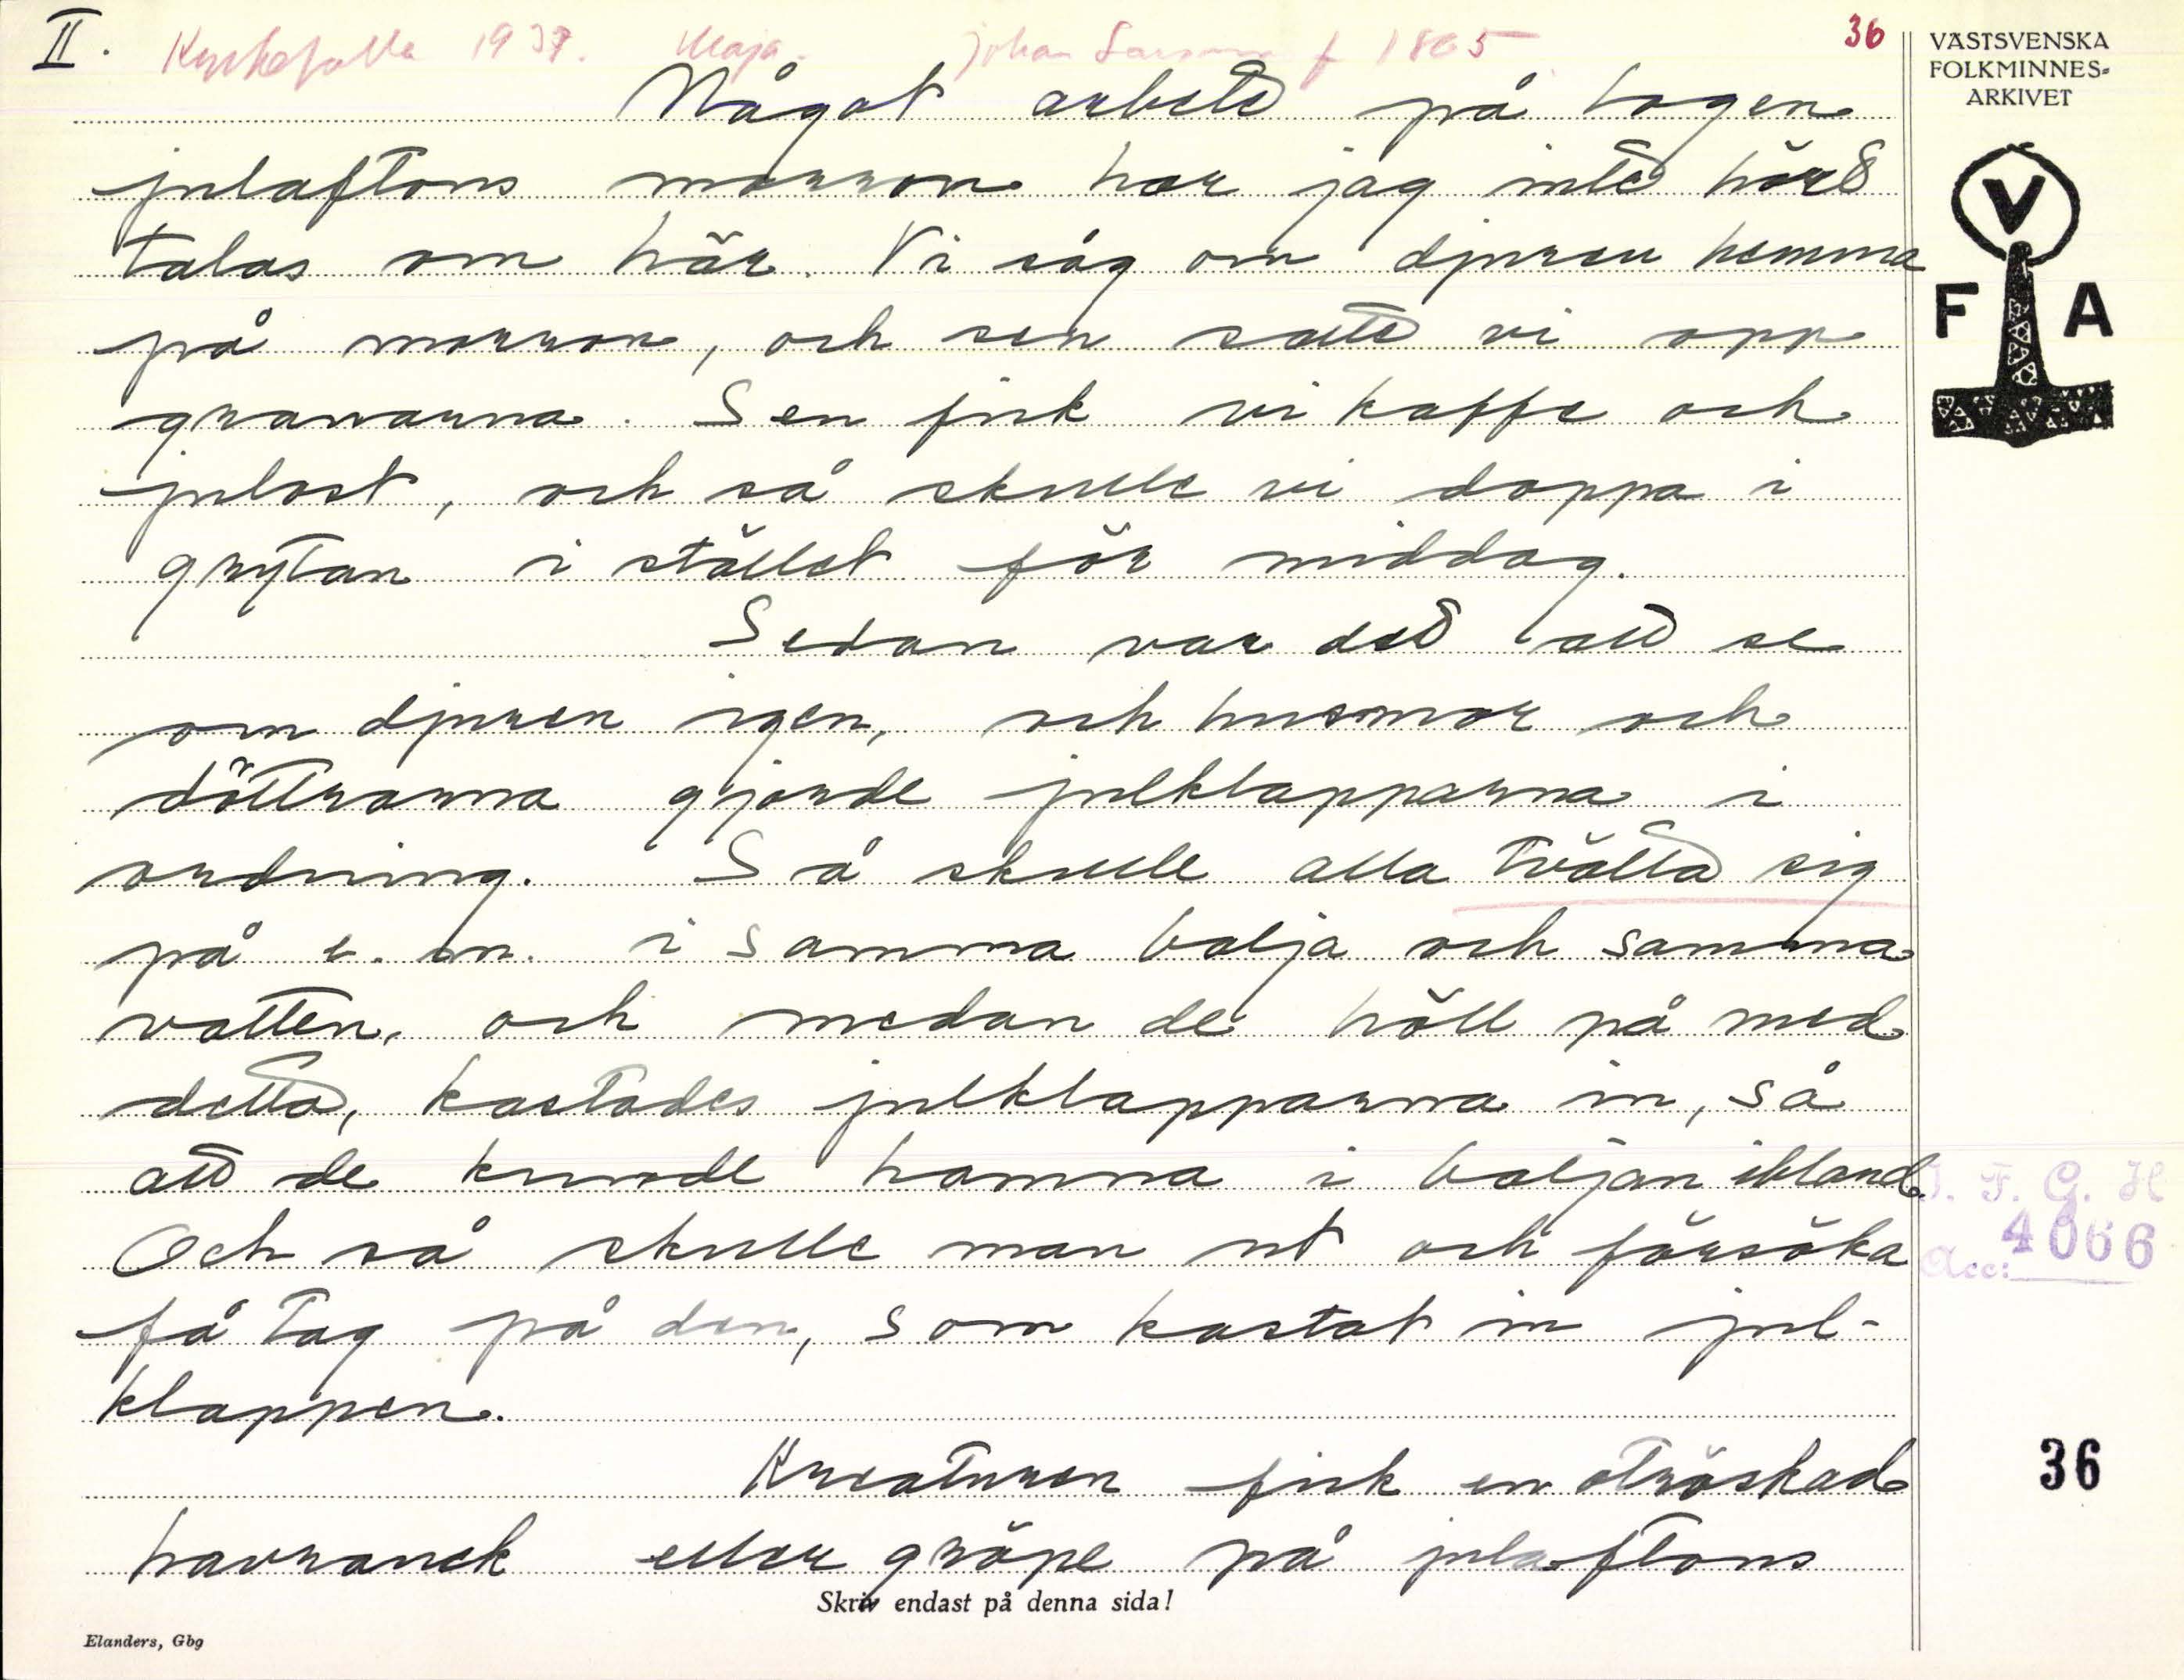 II. Kyrkefalla 1937. Maja. Johan Larsson f 1865 36
VÄSTSVENSKA
FOLKMINNES=
ARKIVET
V
F A
Något arbete på logen
julaftons morron har jag inte hört
talas om här. Vi såg om djuren hemma
på morron, och sen satte vi opp
granarna. Sen fick vi kaffe och
julost, och så skulle vi doppa i
grytan i stället för middag.
Sedan var det att se
om djuren igen, och husmor och
döttrarna gjorde julklapparna i
ordning. Så skulle alla tvätta sig
på e. m. i samma balja och samma
vatten, och medan de höll på med
detta, kastades julklapparna in, så
att de kunde hamna i baljan ibland.
Och så skulle man ut och försöka
få tag på den, som kastat in jul-
klappen.
Kreaturen fick en otröskad
havreneck eller gröpe på julaftons
I. F. G. H
Acc: 4066
36
Skriv endast på denna sida!
Elanders, Gbg